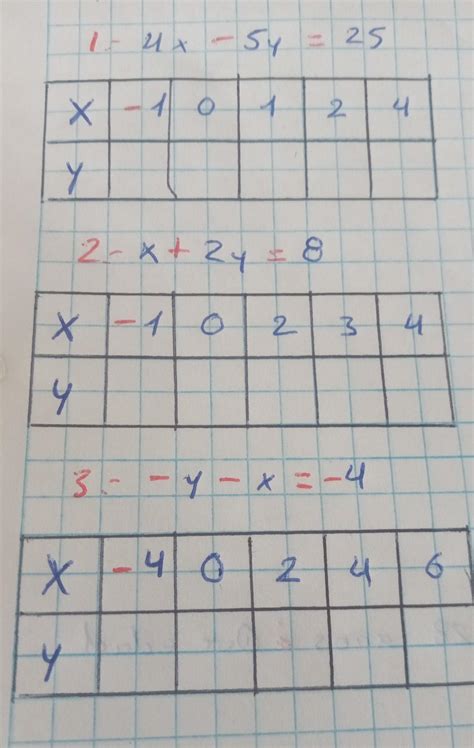 1- 4x - 5y = 25
X -1 0 1 2 4
y
2- x + 2y = 8
X -1 0 2 3 4
y
3- - y - x = -4
X -4 0 2 4 6
y